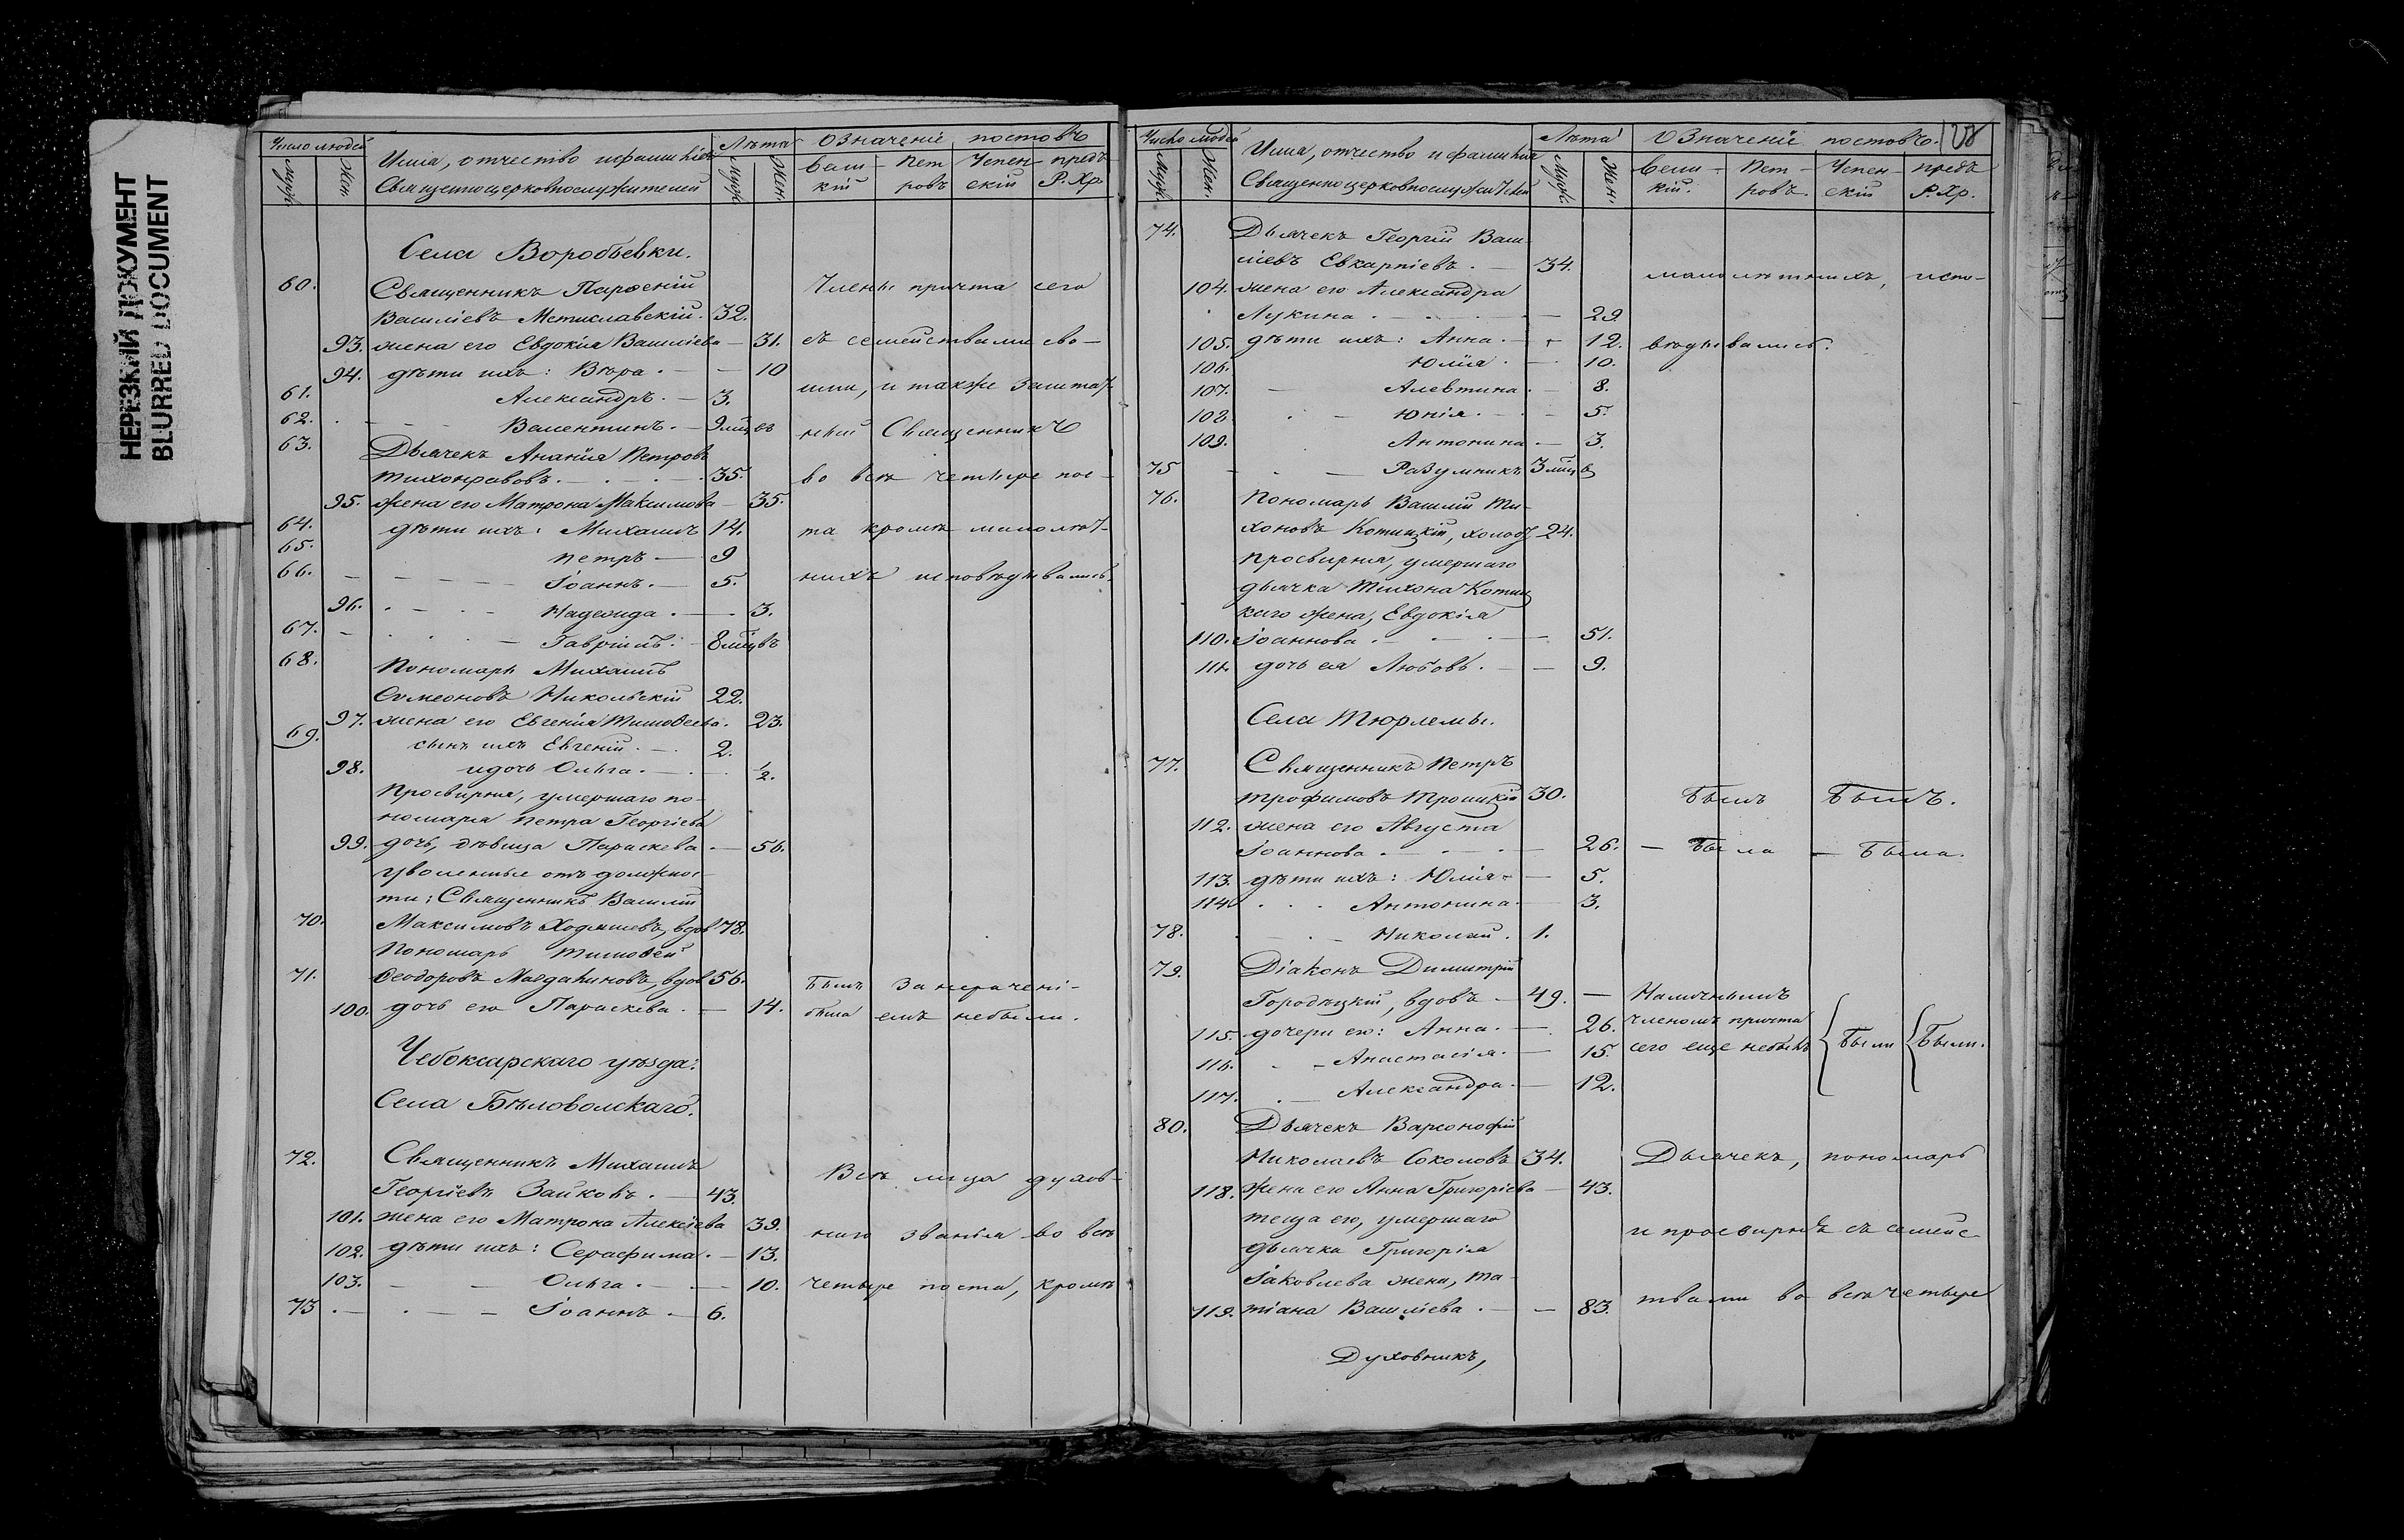 НЕРЕЗКИЙ ДОКУМЕНТ
BLURRED DOCUMENT
Число людей
Имя, отчество и фамилія
Священноцерковнослужителей
Лѣта
Означеніе постовъ
Муж. Жен.
Муж. Жен.
Вели- Пет- Успен- предъ
кій ровъ скій Р. Хр.
Села Воробьевки.
60. Священникъ Парѳеній
Василіевъ Мстиславскій. 32.
93. жена его Евдокія Василіева — 31.
94. дѣти ихъ: Вѣра. — — 10
61. Александръ. — 3.
62. Валентинъ. — 9 мцвъ
63. Дьячекъ Ананія Петровъ
Тихонравовъ. 35.
95. жена его Матрона Максимова — 35.
64. дѣти ихъ: Михаилъ 14.
65. Петръ — 9
66. Іоаннъ. — 5.
96. Надежда. — 3.
67. Гавріилъ. — 8 мцвъ
68. Пономарь Михаилъ
Сѵмеоновъ Никольскій 22.
97. жена его Евгенія Тимоѳеева. 23.
69. сынъ ихъ Евгеній. — 2.
98. и дочь Ольга. — ½.
Просвирня, умершаго по-
номаря Петра Георгіева
99. дочь, дѣвица Параскева. — 56.
уволенные отъ должнос-
ти: Священникъ Василій
70. Максимовъ Ходяшевъ, вдов 78.
Пономарь Тимоѳей
71. Ѳеодоровъ Магдалиновъ, вдов 56.
100. дочь его Параскева. — 14.
Члены причта сего
съ семействами сво-
ими, и также заштат-
ный Священникъ
во всѣ четыре пос-
та кромѣ малолѣт-
нихъ исповѣдывались.
Былъ за нерачені-
была емъ небыли.
Чебоксарскаго уѣзда:
Села Бѣловолжскаго.
72. Священникъ Михаилъ
Георгіевъ Зайковъ. — 43.
101. жена его Матрона Алексіева 39.
102. дѣти ихъ: Серафима. — 13.
103. Ольга. — 10.
73 Іоаннъ — 6.
Всѣ лица духов-
наго званія во всѣ
четыре поста, кромѣ
Число людей
Имя, отчество и фамилія
Священноцерковнослужителей
Лѣта
Означеніе постовъ.
Муж. Жен.
Муж. Жен.
Вели- Пет- Успен- предъ
кій. ровъ. скій Р. Хр.
74. Дьячекъ Георгій Васи-
ліевъ Евкарпіевъ. — 34.
104. жена его Александра
Лукина. — 29
105. дѣти ихъ: Анна. — 12.
106. Юлія. 10.
107. Алевтина. 8.
108. Юнія. — 5.
109. Антонина — 3.
75 Разумникъ 3 мцв
76. Пономарь Василій Ти-
хоновъ Котицкій, холос. 24.
Просвирня, умершаго
дьячка Тихона Котиц
каго жена, Евдокія
110. Іоаннова. — 51.
111. дочь ея Любовь. — 9.
малолѣтнихъ, испо-
вѣдывались.
Села Тюрлемы.
77. Священникъ Петръ
Трофимовъ Троицкій 30. Былъ Былъ.
112. жена его Августа
Іоаннова. — 26. — Была — Была.
113. дѣти ихъ: Юлія — 5.
114. Антонина. 3.
78. Николай. 1.
79. Діаконъ Димитрій
Городецкій, вдовъ — 49. —
115. дочери его: Анна. — 26.
116. Анастасія. — 15.
117. Александра. — 12.
Наличнымъ
членомъ причта
сего еще небылъ
Были Были.
80. Дьячекъ Варсонофій
Николаевъ Соколовъ 34.
118. жена его Анна Григоріева — 43.
теща его, умершаго
дьячка Григорія
Іаковлева жена, Та-
119. тіана Василіева. — 83.
Дьячекъ, пономарь
и просвирня съ семейс-
твами во всѣ четыре
Духовникъ,